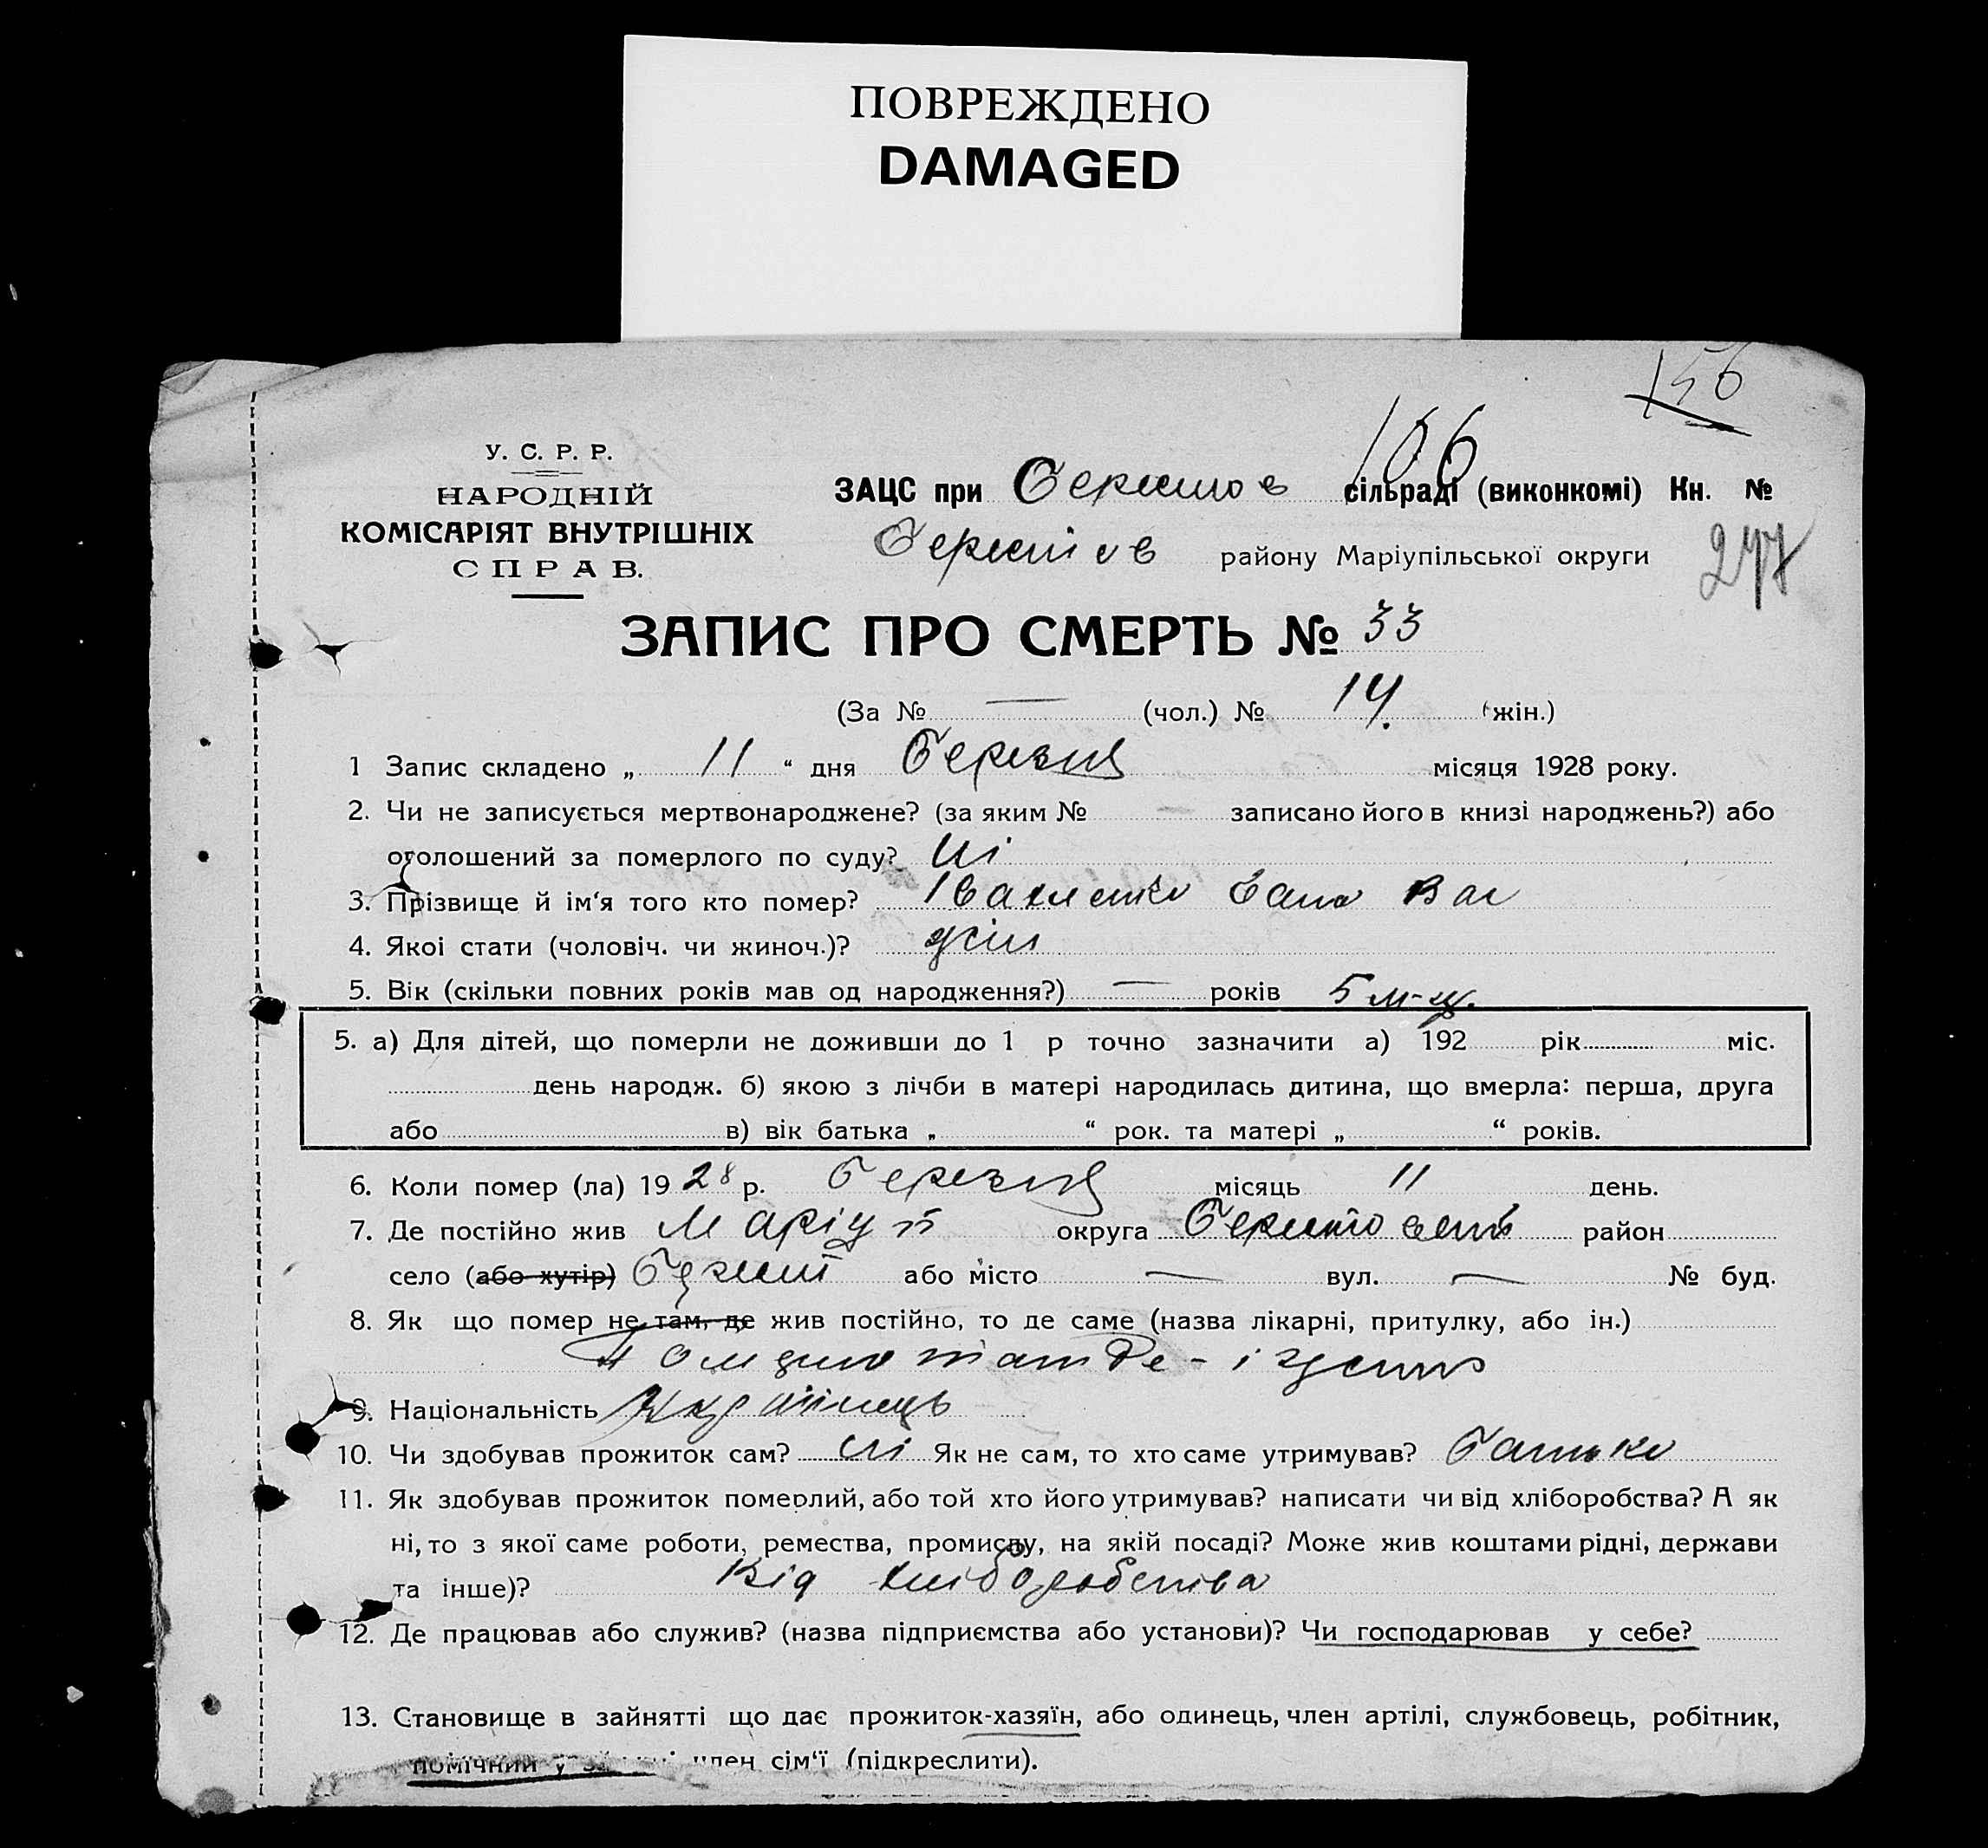 ПОВРЕЖДЕНО
DAMAGED
156
У. С. Р. Р.
НАРОДНІЙ
КОМІСАРІЯТ ВНУТРІШНІХ
СПРАВ.
156
ЗАЦС при Берестов сільраді (виконкомі) Кн. №
Берестов району Маріупільської округи 277
ЗАПИС ПРО СМЕРТЬ № 33
(За № — (чол.) № 14. (жін.)
1 Запис складено „ 11 “ дня Березня місяця 1928 року.
2. Чи не записується мертвонароджене? (за яким № — записано його в книзі народжень?) або
оголошений за померлого по суду? Ні
3. Прізвище й ім‘я того кто помер? Вас
4. Якоі стати (чоловіч. чи жиноч.)? жін
5. Вік (скільки повних років мав од народження?) — років 5 м-ц.
5. а) Для дітей, що померли не доживши до 1 р точно зазначити а) 192 рік міс.
день народж. б) якою з лічби в матері народилась дитина, що вмерла: перша, друга
або в) вік батька „ “ рок. та матері „ “ років.
6. Коли помер (ла) 1928 р. Березня місяць 11 день.
7. Де постійно жив Маріуп округа район
село (або хутір) Берест або місто — вул. — № буд.
8. Як що помер не там, де жив постійно, то де саме (назва лікарні, притулку, або ін.)
Померла там де і
9. Національність Українець
10. Чи здобував прожиток сам? ні Як не сам, то хто саме утримував? Батько
11. Як здобував прожиток померлий, або той хто його утримував? написати чи від хліборобства? А як
ні, то з якої саме роботи, ремества, промислу, на якій посаді? Може жив коштами рідні, держави
та інше)? Від хліборобства
12. Де працював або служив? (назва підприємства або установи)? Чи господарював у себе?
13. Становище в зайнятті що дає прожиток-хазяїн, або одинець, член артілі, службовець, робітник,
помічний у член сім‘ї (підкреслити).